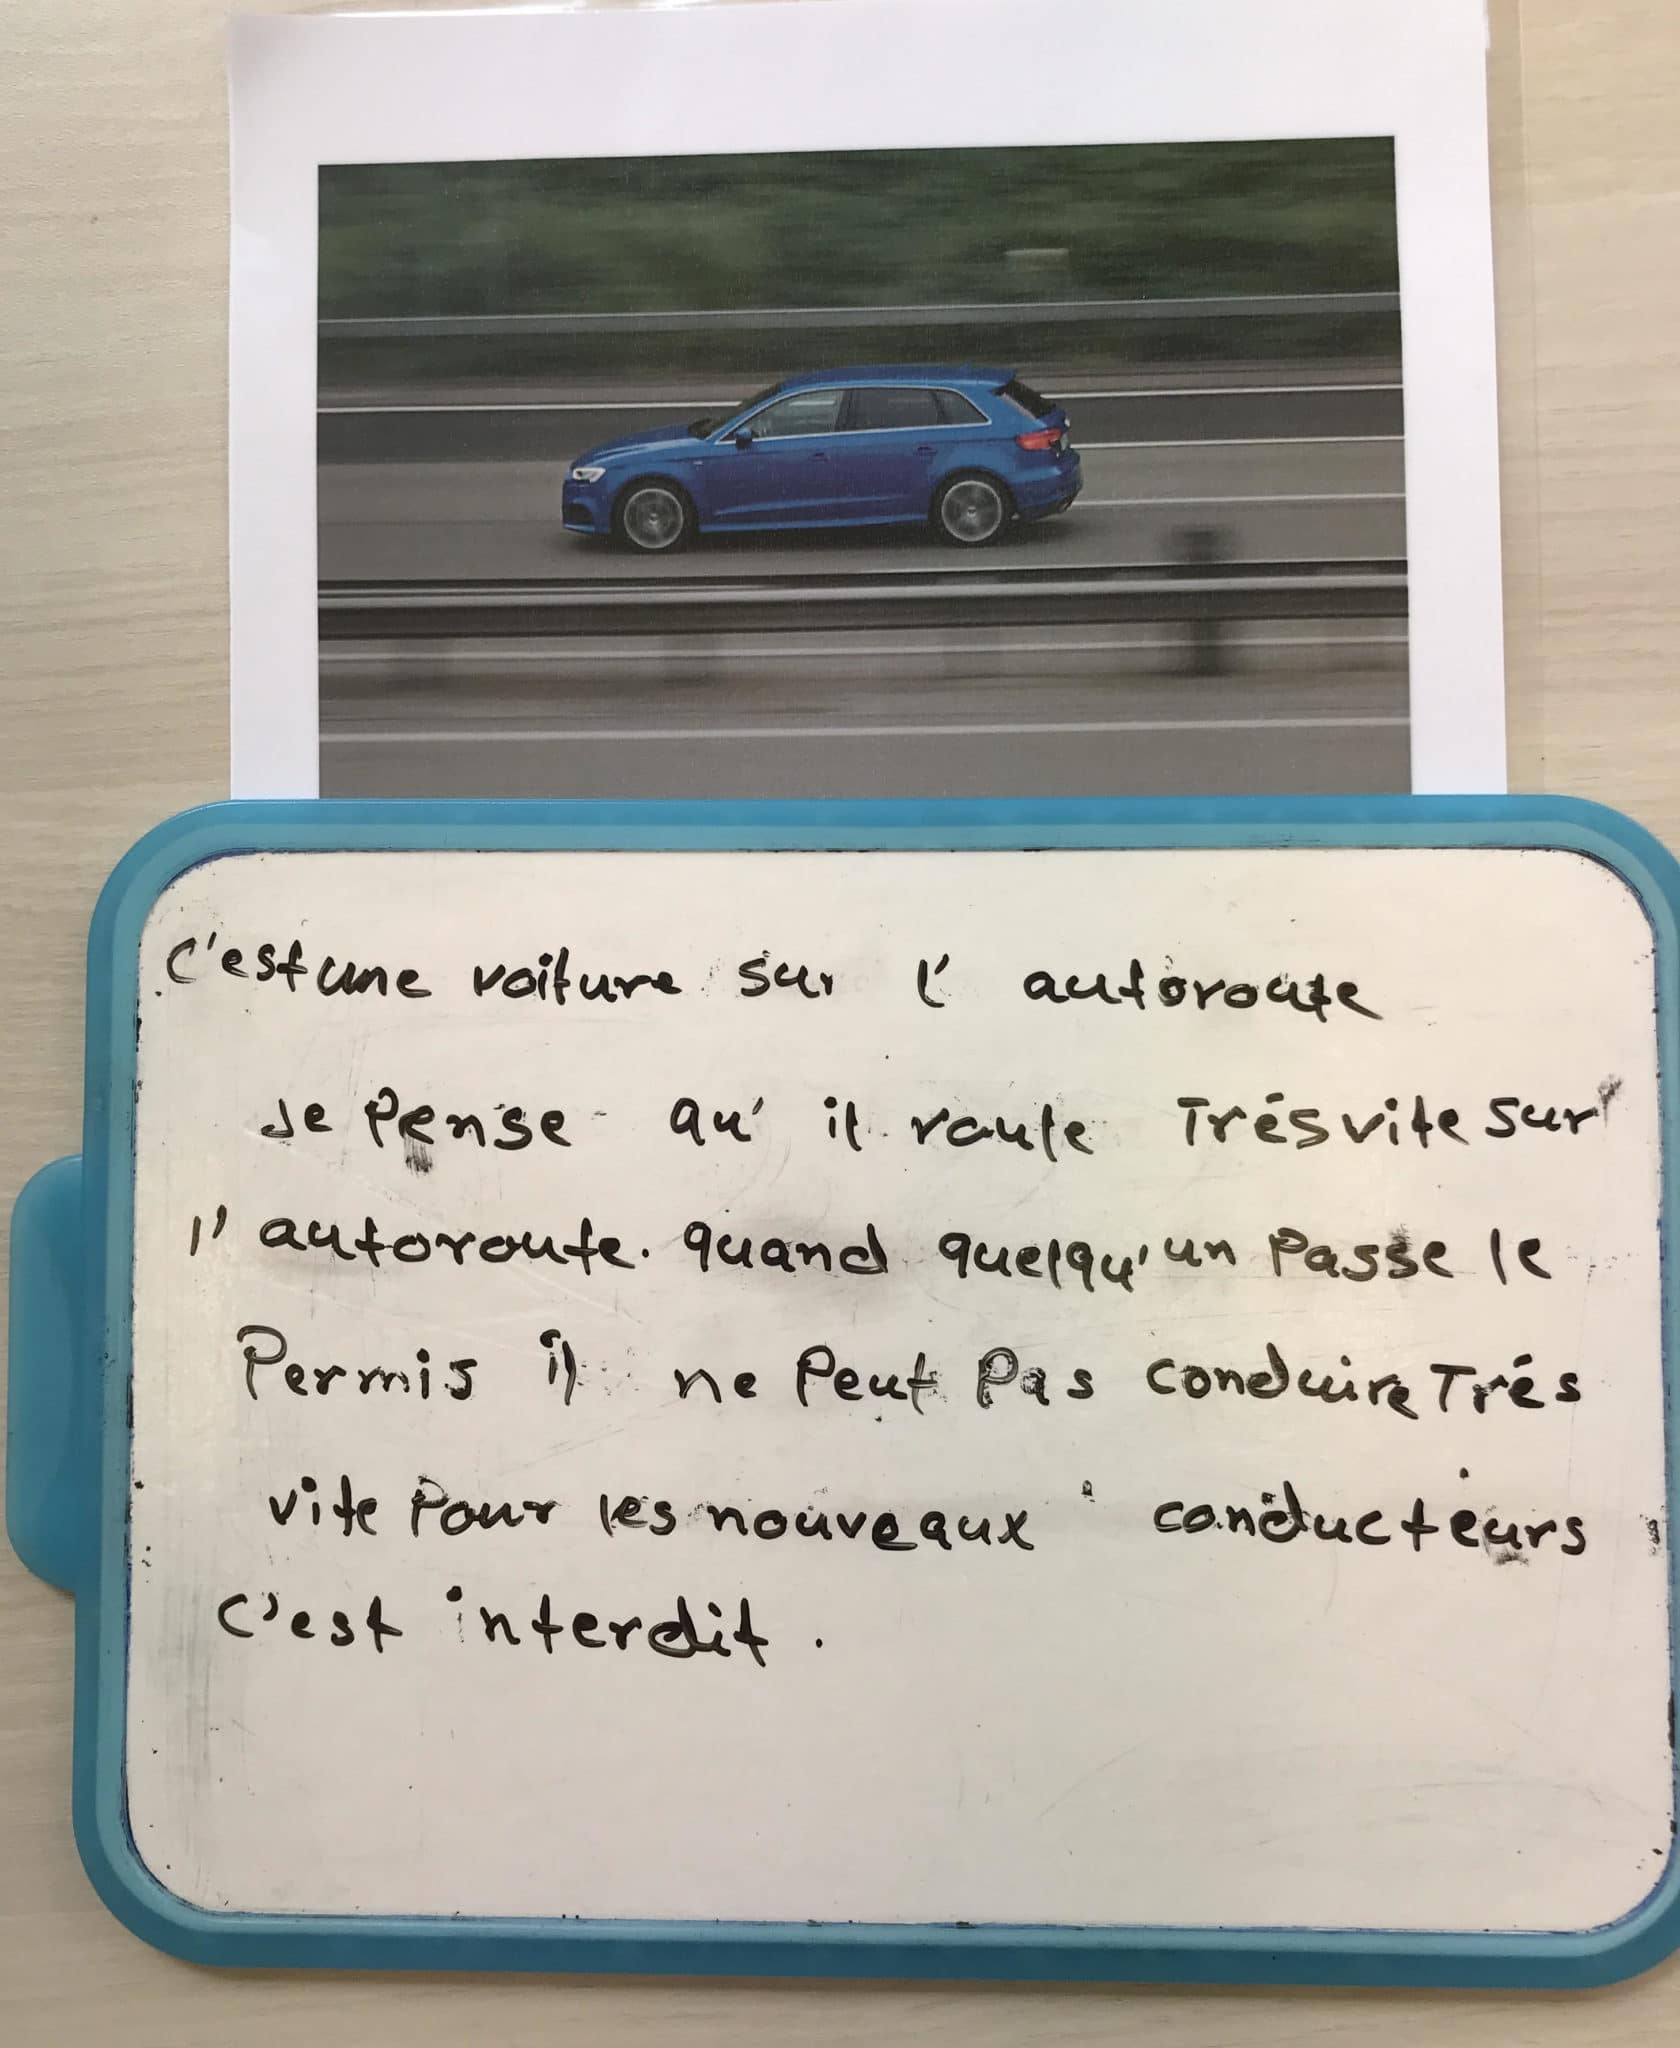 C'est une voiture sur l' autoroute
Je Pense qu' il roule Trés vite sur
l' autoroute. quand quelqu'un Passe le
Permis il ne Peut Pas conduire Trés
vite Pour les nouveaux conducteurs
C'est interdit.